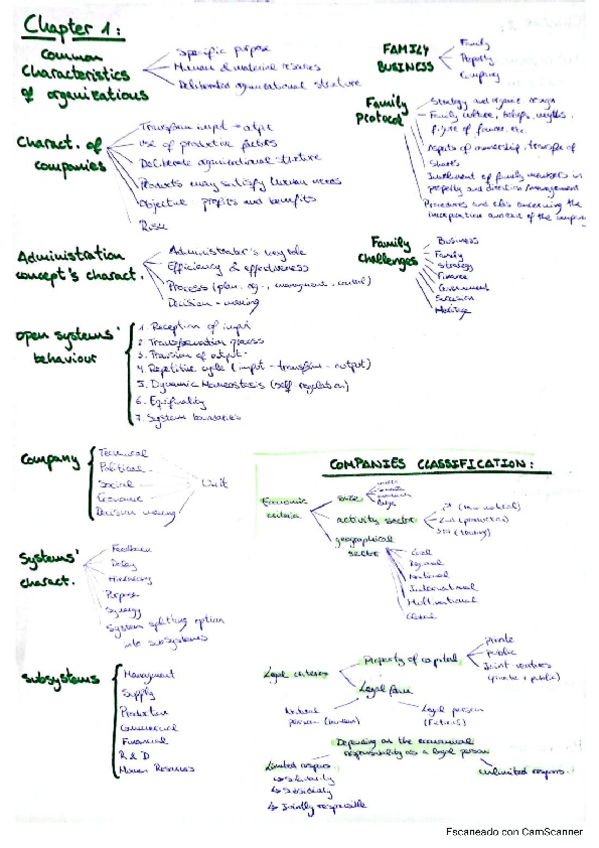 Chapter 1:
Common
Characteristics
of organizations
Specific purpose
Human & material resources
Deliberated organizational structure
Charact. of
companies
Transform input → output
Use of productive factors
Deliberate organizational structure
Products may satisfy human needs
Objective: profits and benefits
Risk
Administration
concept's charact.
Administrator's key role
Efficiency & effectiveness
Process (plan, org., management, control)
Decision-making
open systems'
behaviour
1. Reception of input
2. Transformation process
3. Provision of output
4. Repetitive cycle (input - transform - output)
5. Dynamic Homeostasis (self regulation)
6. Equifinality
7. Systems boundaries
Company
Technical
Political
Social
Economic
Decision making
Unit
Systems'
charact.
Feedback
Delay
Hierarchy
Purpose
Synergy
System splitting option
into subsystems
Subsystems
Management
Supply
Production
Commercial
Financial
R & D
Human Resources
FAMILY
BUSINESS
Family
Property
Company
Family
Protocol
Strategy and organic design
Family culture, beliefs, myths,
figure of founder, etc.
Aspects of ownership, transfer of
shares
Involvement of family members in
property and direction/management
Procedures and
incorporation of the
Family
Challenges
Business
Family
Strategy
Finance
Government
Succession
Heritage
COMPANIES CLASSIFICATION:
Economic
criteria
Size
activity sector
(raw material)
2nd (production)
geographical
sector
Local
Regional
National
International
Multinational
Global
Legal criteria
Property of capital
Private
Public
Joint ventures
(private + public)
Legal form
Natural
person (human)
Legal person
(fictitious)
Depending on the economical
responsibility as a legal person
Limited respons.
↳ Solidarity
↳ Subsidiaty
↳ Jointly responsible
Unlimited respons.
Escaneado con CamScanner